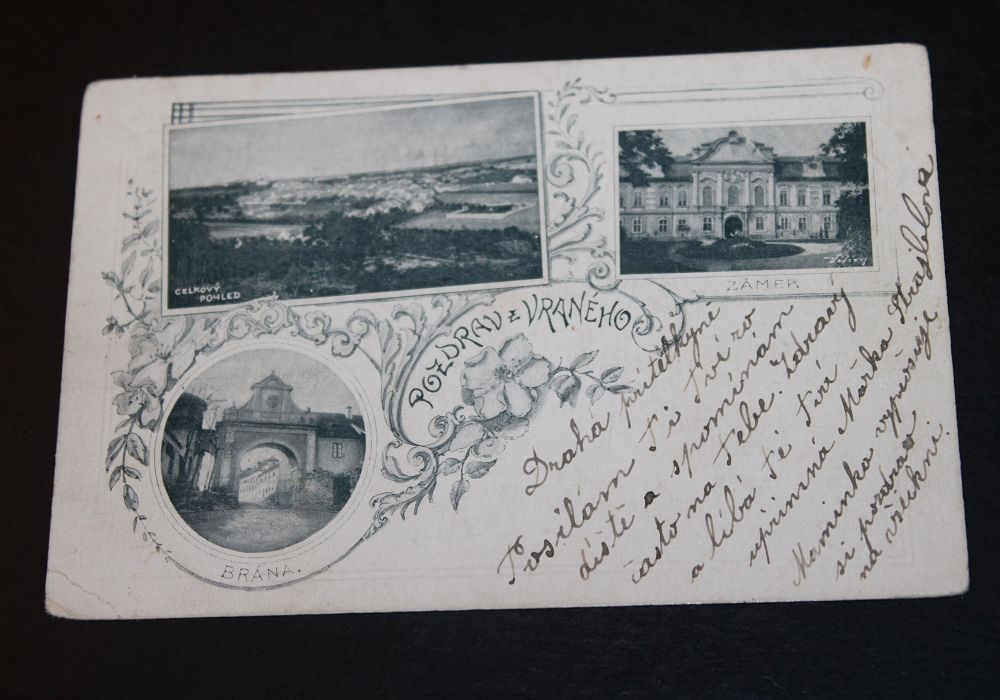 CELKOVÝ
POHLED
ZÁMEK
POZDRAV Z VRANÉHO
BRÁNA.
Drahá přítelkyně
Posílám Ti
dítě a spomínám
často na Tebe. Zdravý
a líbá Tě Tvá
upřímná Mařka
Maminka vyprošuje
si pozdrav
na všechni.